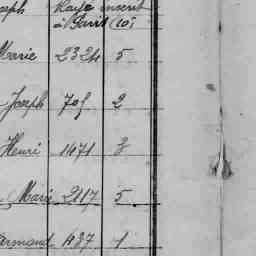 Joseph Rayé inscrit
à Paris (10)
Marie 2324 5
Joseph 705 2
Henri 1471 8
Marie 2117 5
Armand 1837 1